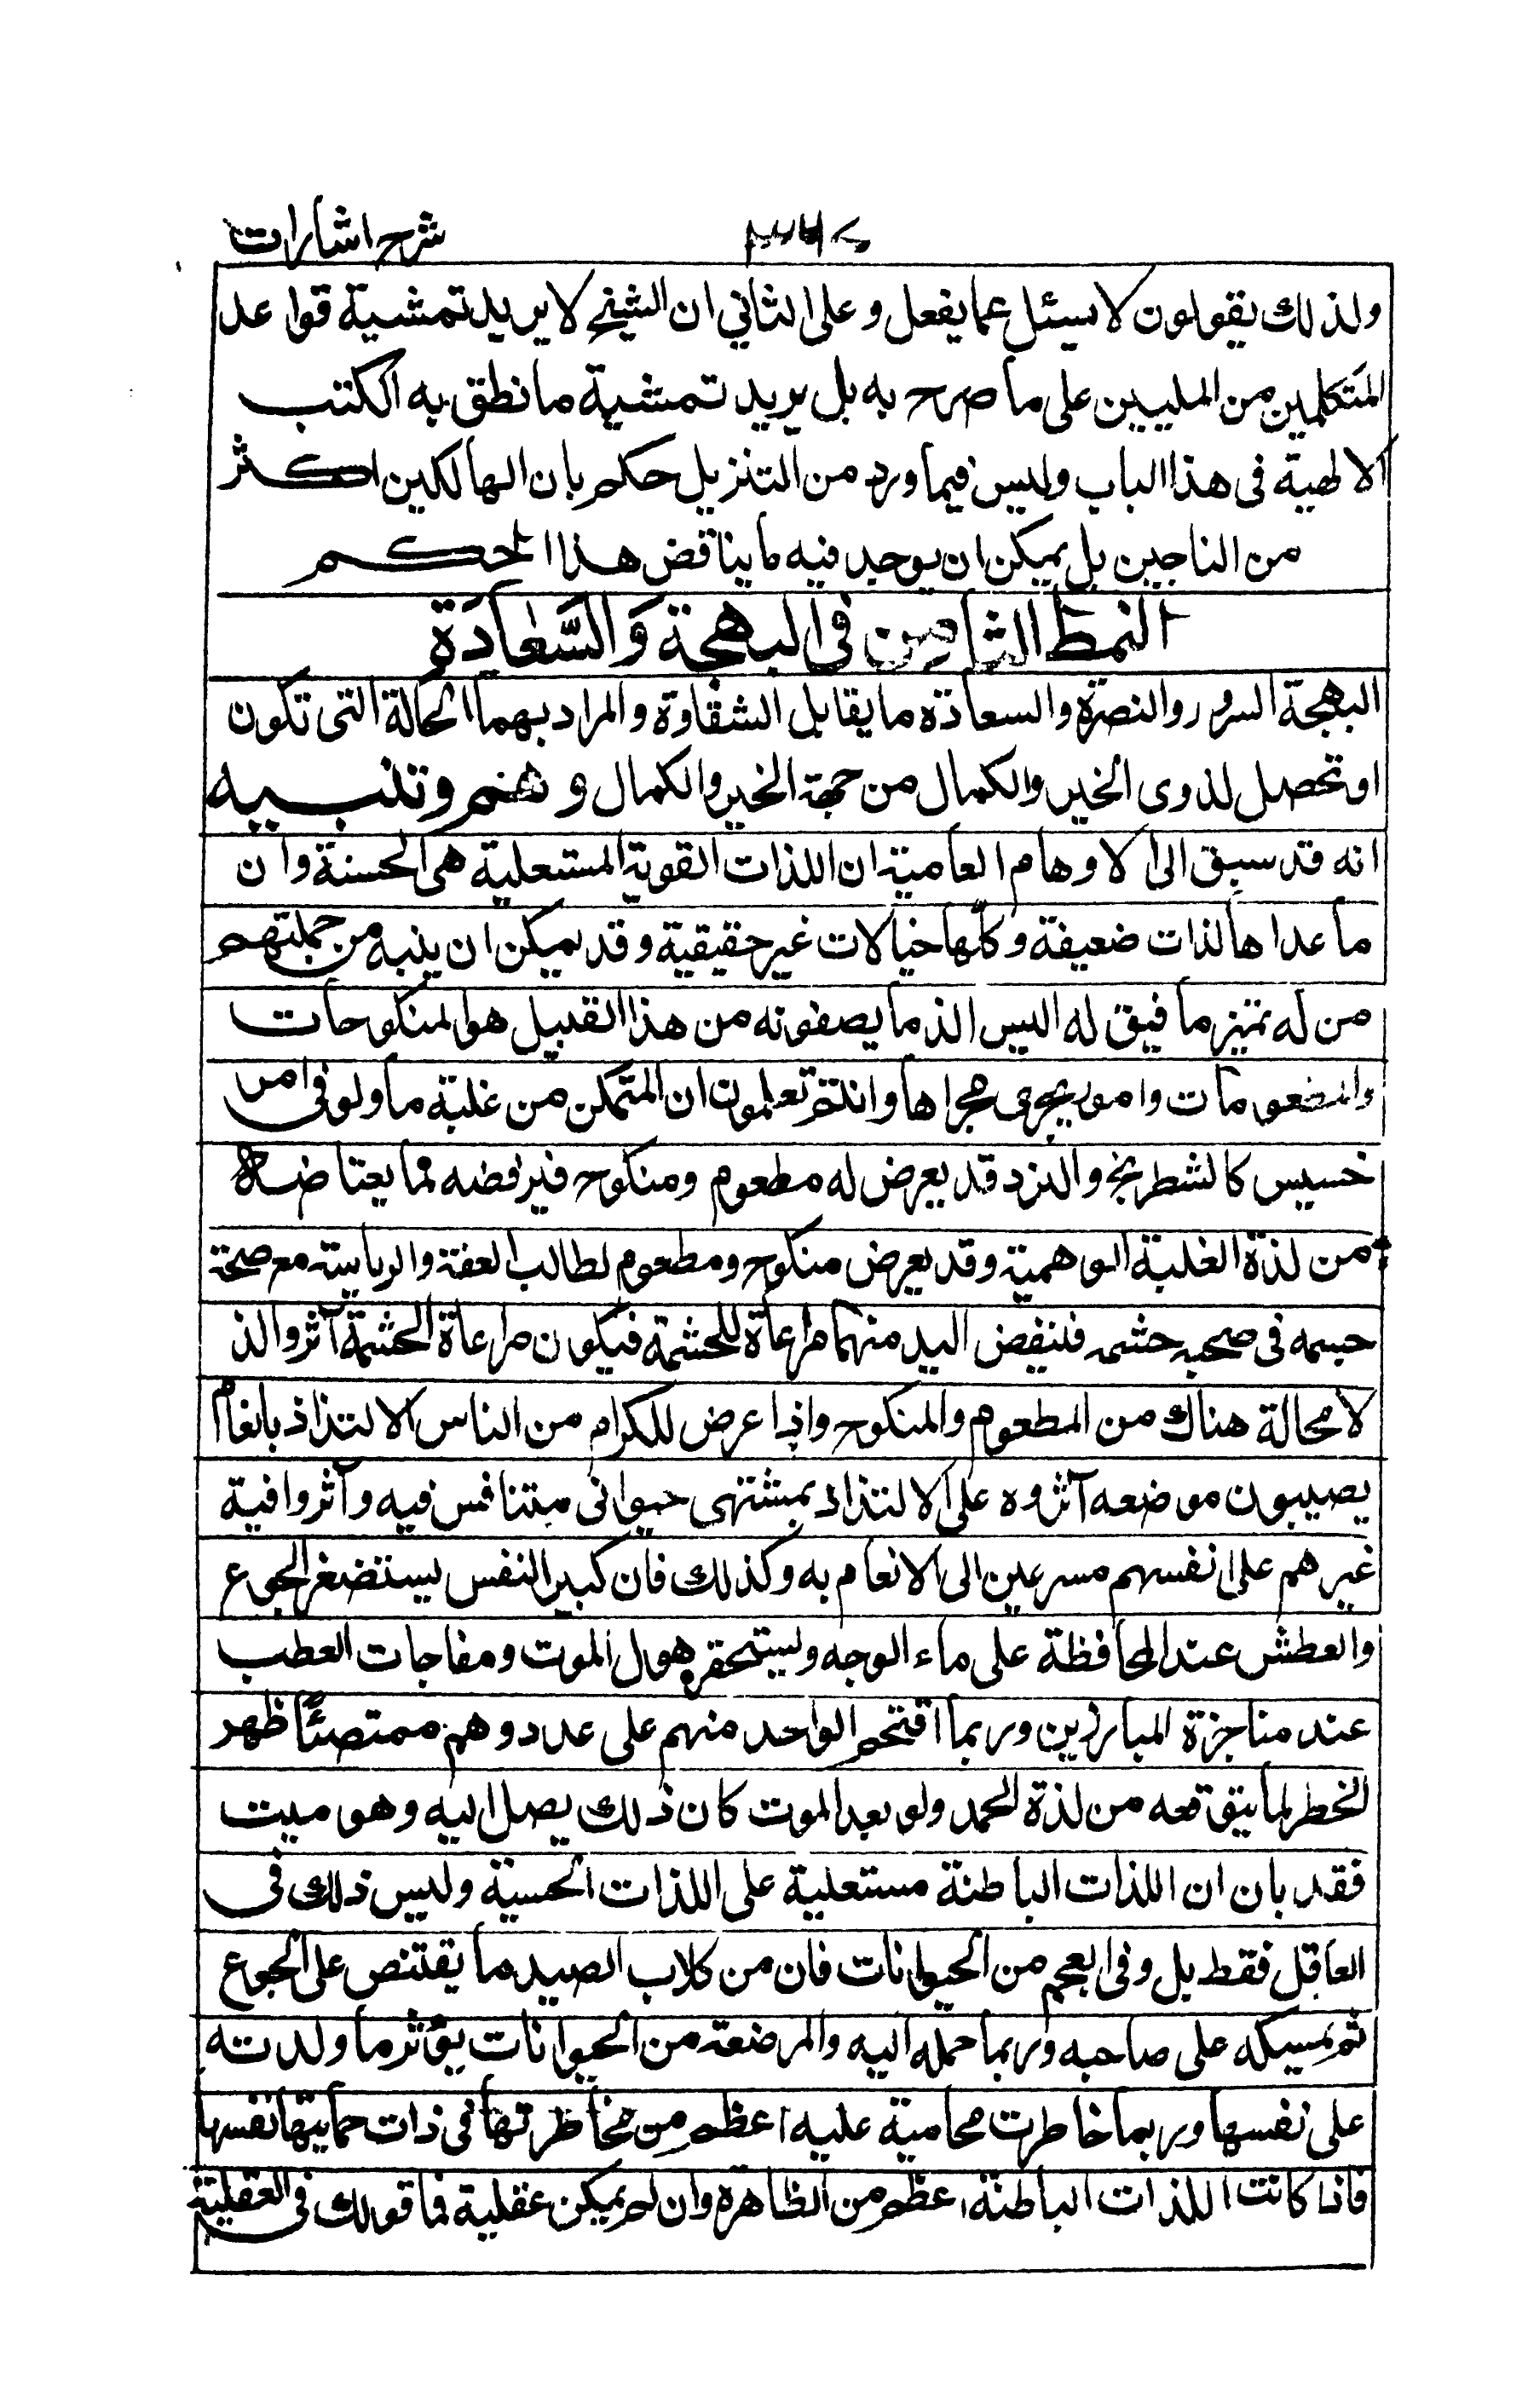 شرح اشارات
ولذلك يقولون لا يسئل عما يفعل وعلى الثاني ان الشيخ لا يريد تمشية قواعد
المتكلمين من المليين على ما صرح به بل يريد تمشية ما نطق به الكتب
الالهية فى هذا الباب وليس فيما ورد من التنزيل حكم بان الهالكين اكثر
من الناجين بل يمكن ان يوجد فيه ما يناقض هذا الحكم
النمط الثامن فى البهجة والسَّعادَة
البهجة السرور والنضرة والسعادة ما يقابل الشقاوة والمراد بهما الحالة التى تكون
او تحصل لذوى الخير والكمال من جهة الخير والكمال وهم وتنبيه
انه قد سبق الى الاوهام العامية ان اللذات القوية المستعلية هى الحسية وان
ما عداها لذات ضعيفة وكلها خيالات غير حقيقية وقد يمكن ان ينبه من جملتهم
من له تميز ما فيق له اليس الذ ما يصفونه من هذا القبيل هو المنكوحات
والمطعومات وامور يجرى مجراها وانتم تعلمون ان المتمكن من غلبة ما ولو فى امر
خسيس كالشطرنج والنرد قد يعرض له مطعوم ومنكوح فيرفضه لما يعتاضه
من لذة الغلبة الوهمية وقد يعرض منكوح ومطعوم لطالب العفة والرياسة مع صحة
جسمه فى صحبه حشمه فينفض اليد منهما مراعاة للحشمة فيكون مراعاة الحشمة آثر والذ
لا محالة هناك من المطعوم والمنكوح واذا عرض للكرام من الناس الالتذاذ بانعام
يصيبون موضعه آثروه على الالتذاذ بمشتهى حيوانى متنافس فيه وآثروا فيه
غيرهم على انفسهم مسرعين الى الانعام به وكذلك فان كبير النفس يستصغر الجوع
والعطش عند المحافظة على ماء الوجه ويستحقر هول الموت ومفاجات العطب
عند مناجزة المبارزين وربما اقتحم الواحد منهم على عدد وهم ممتصئًا ظهر
الخطر لما يتوقعه من لذة الحمد ولو بعد الموت كان ذلك يصل اليه وهو ميت
فقد بان ان اللذات الباطنة مستعلية على اللذات الحسية وليس ذلك فى
العاقل فقط بل وفى العجم من الحيوانات فان من كلاب الصيد ما يقتنص على الجوع
ثم يمسكه على صاحبه وربما حمله اليه والمرضعة من الحيوانات يؤثر ما ولدته
على نفسها وربما خاطرت محامية عليه اعظم من مخاطرتها فى ذات حمايتها نفسها
فاذا كانت اللذات الباطنة اعظم من الظاهرة وان لم يكن عقلية فما قولك فى العقلية